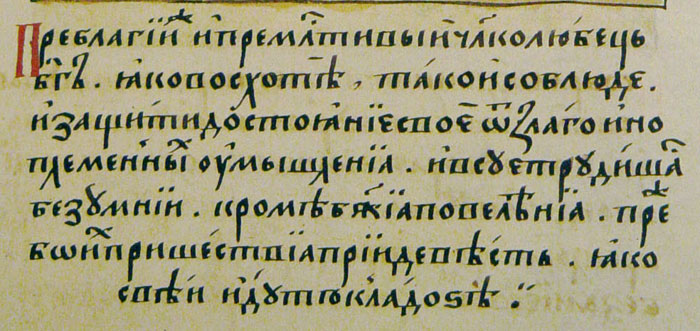 Преблагїй же и премлⷭтивыи и҆ члкⷪлюбець
бг҃ъ . ꙗко восхотѣ , тако и соблюде .
и защити достоꙗнїе свое ѿ злаго и но
племенныⷯ оумышленїѧ . и всуе трудишаⷭ
безумнїи . кромѣ бж҃їꙗ повелѣнїѧ . преⷤ
бо иⷯ пришествїѧ прїиде вѣсть . ꙗко
свѣи идуть к ладозѣ ..